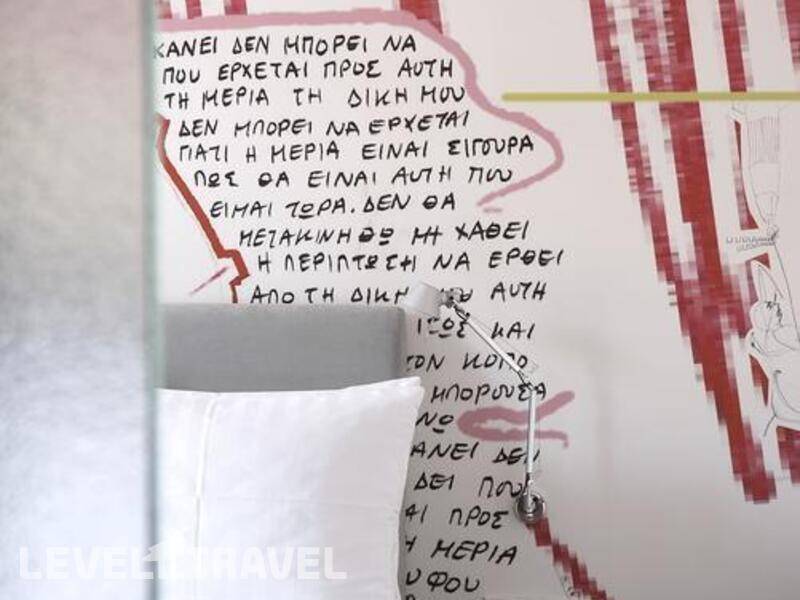 ΚΑΝΕΙ ΔΕΝ ΜΠΟΡΕΙ ΝΑ
ΠΟΥ ΕΡΧΕΤΑΙ ΠΡΟΣ ΑΥΤΗ
ΤΗ ΜΕΡΙΑ ΤΗ ΔΙΚΗ ΜΟΥ
ΔΕΝ ΜΠΟΡΕΙ ΝΑ ΕΡΧΕΤΑΙ
ΓΙΑΤΙ Η ΜΕΡΙΑ ΕΙΝΑΙ ΣΙΓΟΥΡΑ
ΠΩΣ ΘΑ ΕΙΝΑΙ ΑΥΤΗ ΠΟΥ
ΕΙΜΑΙ ΤΩΡΑ. ΔΕΝ ΘΑ
ΜΕΤΑΚΙΝΗΘΩ ΜΗ ΧΑΘΕΙ
Η ΠΕΡΙΠΤΩΣΗ ΝΑ ΕΡΘΕΙ
ΑΠΟ ΤΗ ΔΙΚΗ ΜΟΥ ΑΥΤΗ
ΙΣΩΣ ΚΑΙ
ΤΟΝ ΚΟΠΟ
ΜΠΟΡΟΥΣΑ
ΝΩ
ΑΝΕΙ ΔΕΝ
ΔΕΙ ΠΟΥ
ΑΙ ΠΡΟΣ
Η ΜΕΡΙΑ
ΥΦΟΥ
LEVEL.TRAVEL